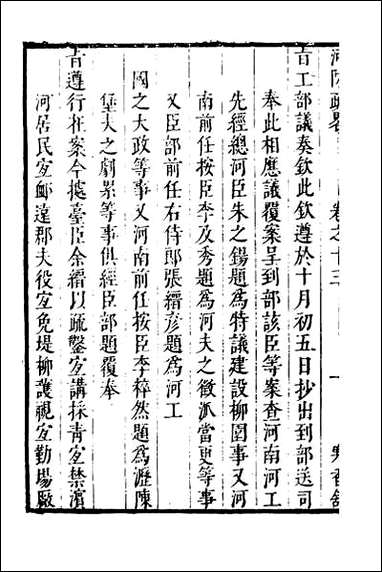 河防疏畧 卷之十三 一
旨工部議奏欽此欽遵於十月初五日抄出到部送司
奉此相應議覆案呈到部該臣等案查河南河工
先經總河臣朱之錫題為特議建設柳園事又河
南前任按臣李及秀題為河夫之徵派當更等事
又臣部前任右侍郎張縉彥題為河工
國之大政等事又河南前任按臣李粹然題為瀝陳
堡夫之劇累等事俱經臣部題覆奉
旨遵行在案今據臺臣余縉以疏鑿宜講採青宜禁濱
河居民宜䘏遠郡夫役宜免堤柳護視宜勤場厰